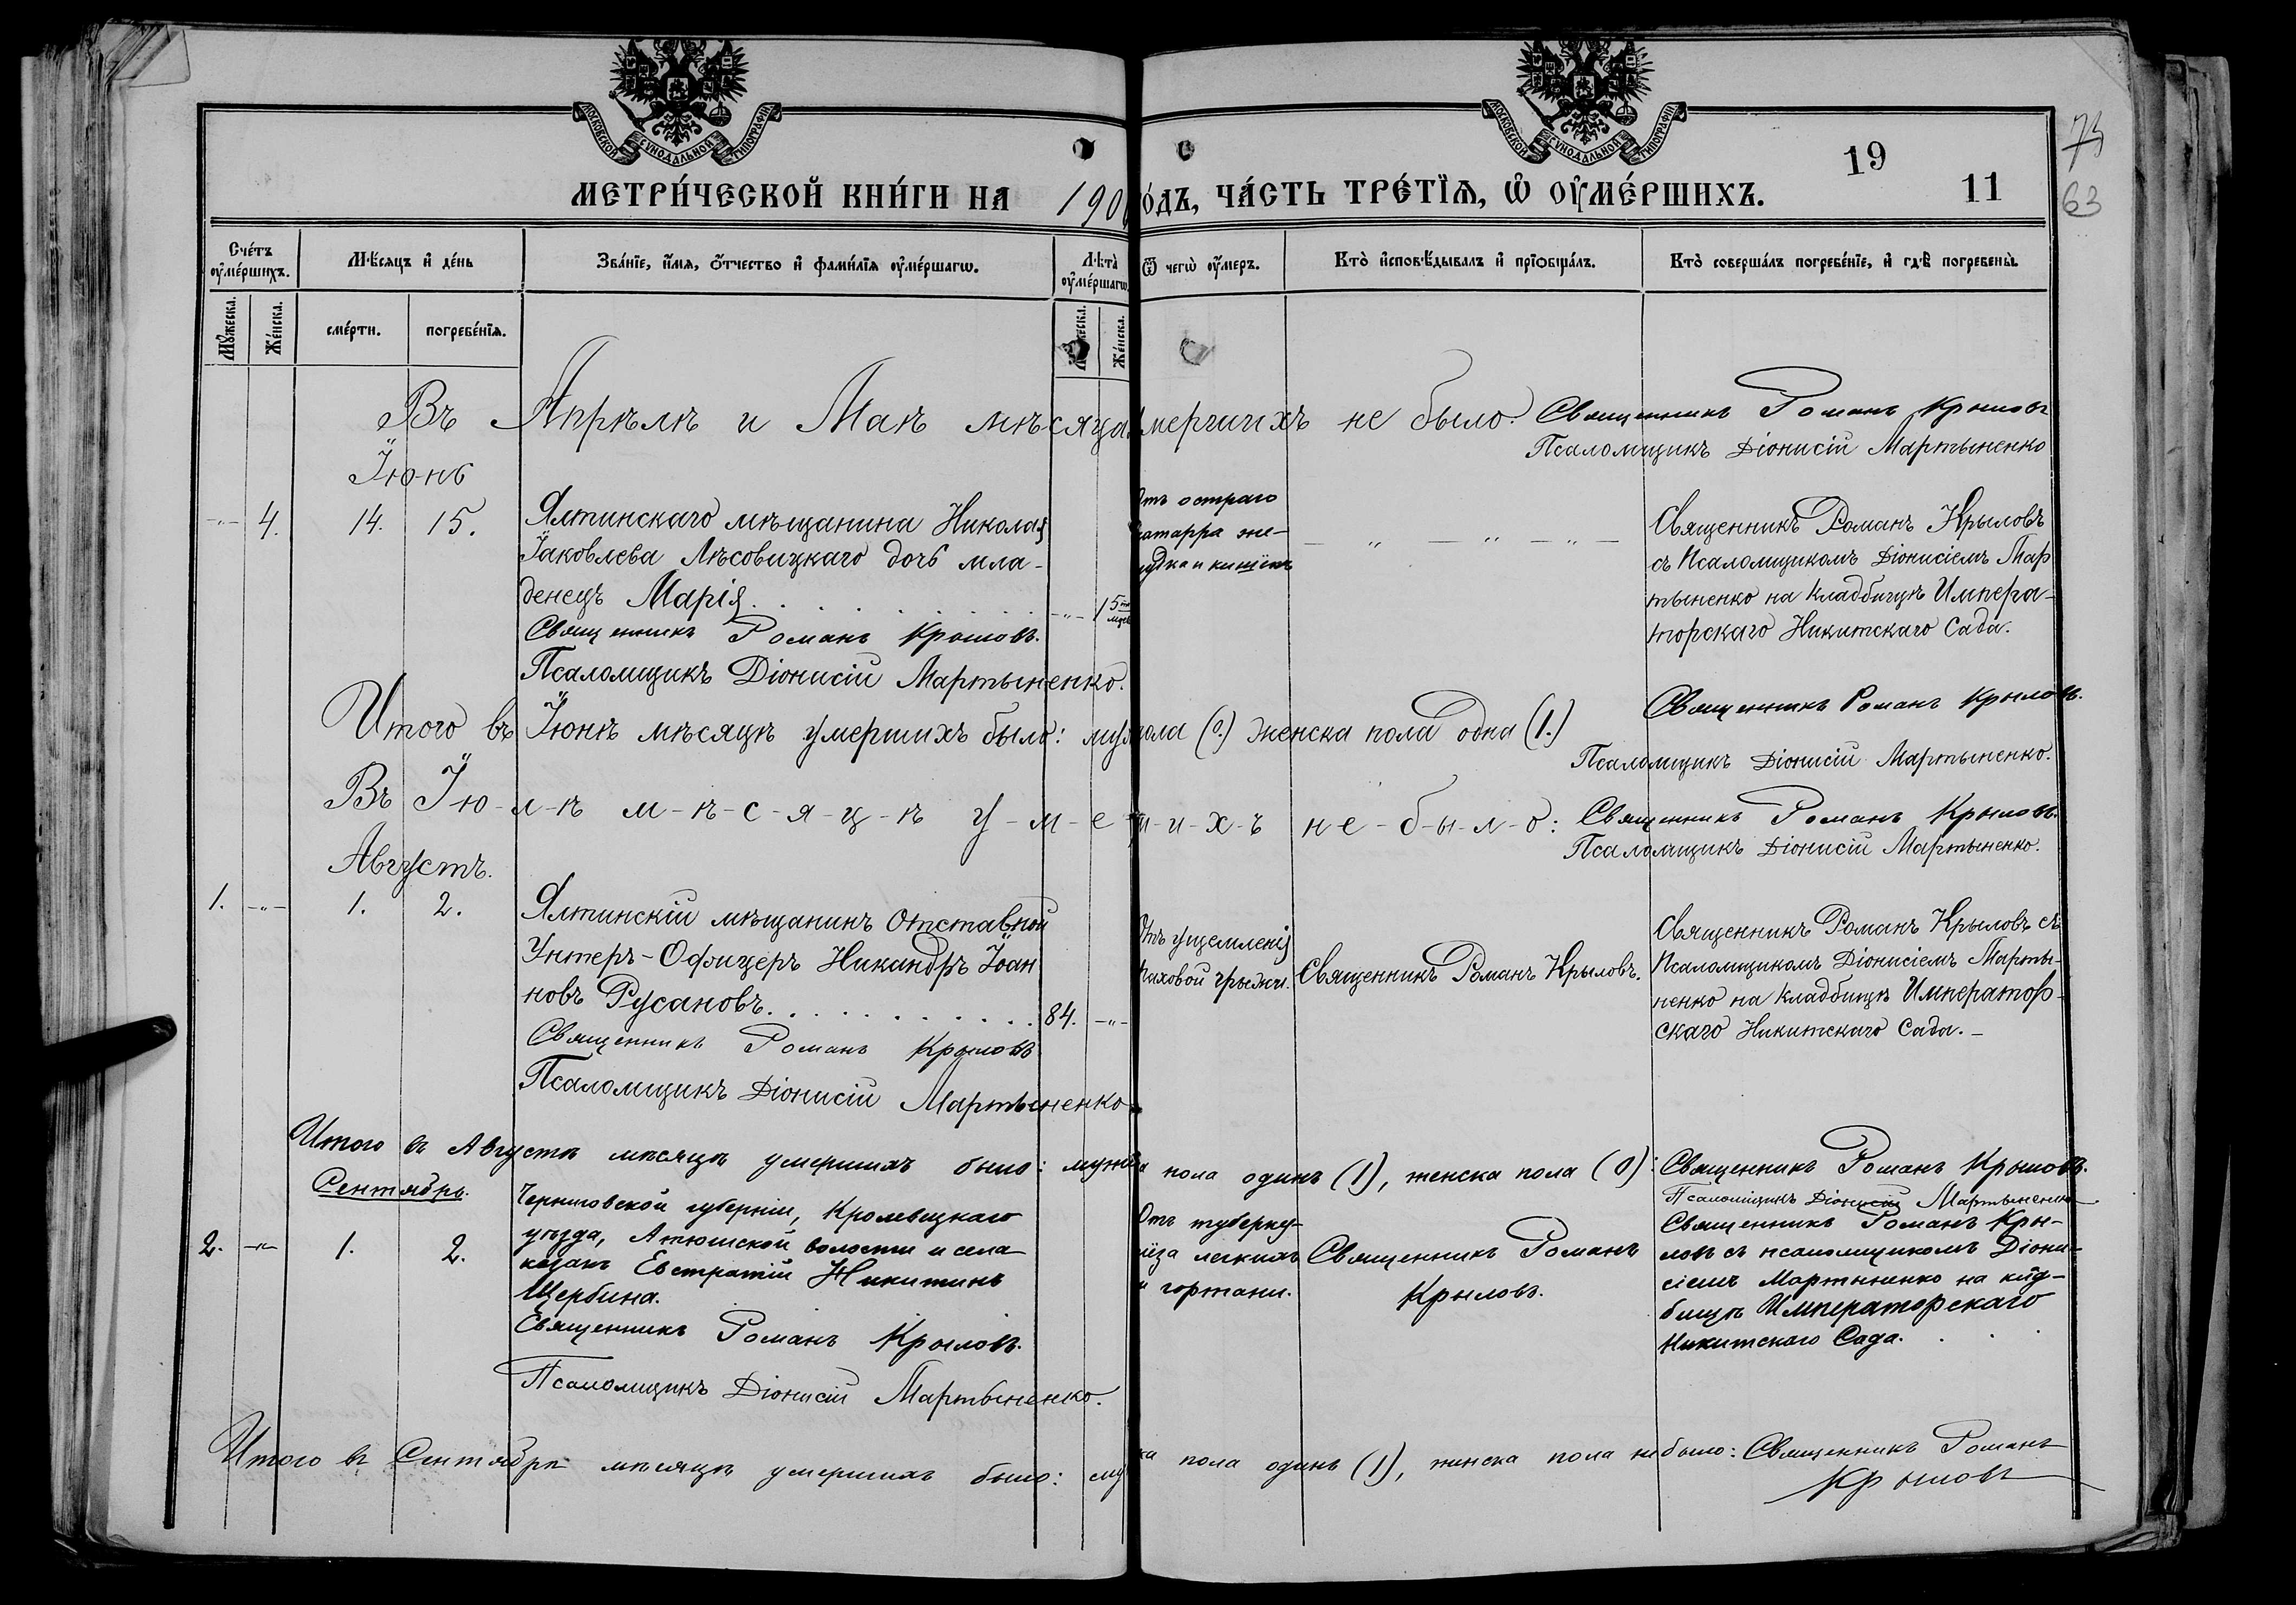 МОСКОВСКОЙ СУНОДАЛЬНОЙ ТИПОГРАФІИ
МОСКОВСКОЙ СУНОДАЛЬНОЙ ТИПОГРАФІИ
МЕТРИ́ЧЕСКОЙ КНИ́ГИ НА 190
О́ДЪ, ЧА́СТЬ ТРЕ́ТЇѦ, Ѡ҆ ОУ҆МЕ́РШИХЪ.
19
11
63
Сче́тъ оу҆ме́ршихъ.
Мѣ́сяцъ и҆ де́нь
Зва́нїе, и҆́мя, ѻ҆́тчество и҆ фами́лїя оу҆ме́ршагѡ.
Лѣ́та оу҆ме́ршагѡ.
Ѿ чегѡ̀ оу҆́меръ.
Кто̀ и҆сповѣ́дывалъ и҆ прїѡбща́лъ.
Кто̀ соверша́лъ погребе́нїе, и҆ гдѣ̀ погребены̀.
Му́жеска.
Же́нска.
сме́рти.
погребе́нїя.
Же́нска.
Въ Апрѣлѣ и Маѣ мѣсяца мершихъ не было. Священникъ Романъ Крыловъ
Псаломщикъ Діонисій Мартыненко
Іюнь
-"- 4. 14. 15.
Ялтинскаго мѣщанина Николая
Іаковлева Лѣсовицкаго дочь мла-
денецъ Марія
-"- 1 5ти мцев
Священникъ Романъ Крыловъ.
Псаломщикъ Діонисій Мартыненко.
Отъ остраго
катарра же-
лудка и кишекъ
— " — " — " —
Священникъ Романъ Крыловъ
съ Псаломщикомъ Діонисіемъ Мар
тыненко на кладбищѣ Импера-
торскаго Никитскаго Сада.
Итого въ Іюнѣ мѣсяцѣ умершихъ было: муж пола (0.) женска пола одна (1.)
Священникъ Романъ Крыловъ.
Псаломщикъ Діонисій Мартыненко.
Въ Ію-л-ѣ м-ѣ-с-я-ц-ѣ у-м-е ш-и-х-ъ не-б-ы-л-о: Священникъ Романъ Крыловъ.
Псаломщикъ Діонисій Мартыненко.
Августъ.
1. -"- 1. 2.
Ялтинскій мѣщанинъ Отставной
Унтеръ-Офицеръ Никандръ Іоан
новъ Русановъ. 84. -"-
Священникъ Романъ Крыловъ
Псаломщикъ Діонисій Мартыненко.
Отъ ущемленія
паховой грыжи.
Священникъ Романъ Крыловъ.
Священникъ Романъ Крыловъ съ
Псаломщикомъ Діонисіемъ Марты-
ненко на кладбищѣ Император-
скаго Никитскаго Сада. -
Итого въ Августѣ мѣсяцѣ умершихъ было: мужска пола одинъ (1), женска пола (0): Священникъ Романъ Крыловъ.
Псаломщикъ Діонисій Мартыненко
Сентябрь.
2. -"- 1. 2.
Черниговской губерніи, Кролевецкаго
уѣзда, Атюшской волости и села
казакъ Евстратій Никитинъ
Щербина.
Священникъ Романъ Крыловъ.
Псаломщикъ Діонисій Мартыненко.
Отъ туберку-
лёза легкихъ
и гортани.
Священникъ Романъ
Крыловъ.
Священникъ Романъ Кры-
ловъ съ псаломщикомъ Діони-
сіемъ Мартыненко на клад-
бищѣ Императорскаго
Никитскаго Сада.
Итого въ Сентябрѣ мѣсяцѣ умершихъ было: му ка пола одинъ (1), женска пола не было: Священникъ Романъ
Крыловъ